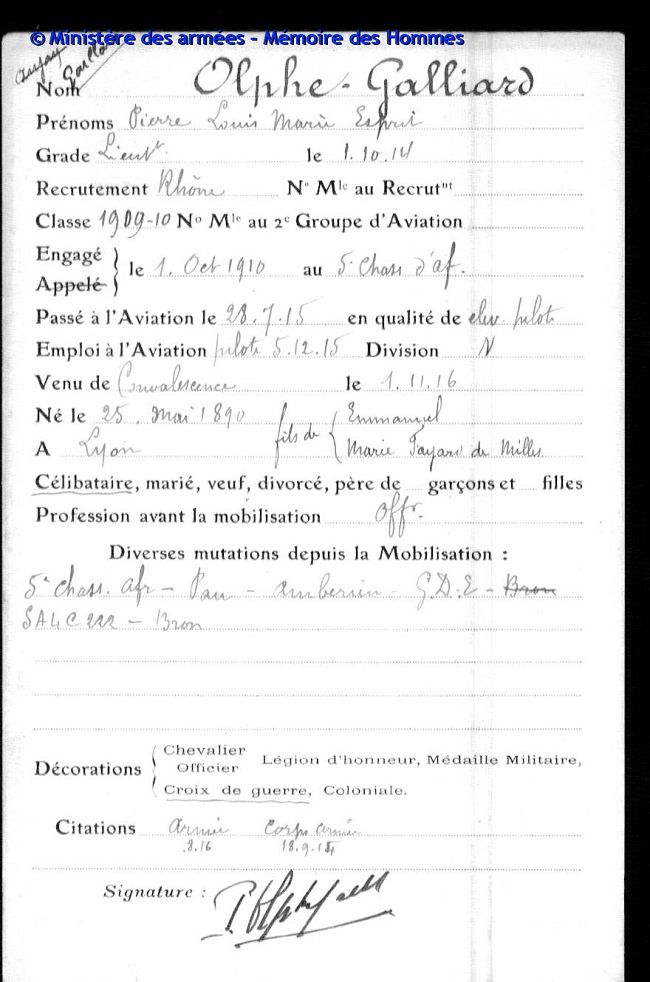 © Ministère des armées - Mémoire des Hommes
Nom Olphe-Galliard
Prénoms Pierre Louis Marie Esprit
Grade Lieut le 1.10.14
Recrutement Rhône N° Mle au Recrutnt
Classe 1909-10 No Mle au 2e Groupe d'Aviation
Engagé
Appelé } le 1. Oct 1910 au 5e Chass d'af.
Passé à l'Aviation le 28.7.15 en qualité de elev. pilote
Emploi à l'Aviation pilote 5.12.15 Division N
Venu de Convalescence le 1.11.16
Né le 25. Mai 1890 fils de { Emmanuel
A Lyon Marie Fayard de Milles
Célibataire, marié, veuf, divorcé, père de garçons et filles
Profession avant la mobilisation offr.
Diverses mutations depuis la Mobilisation :
5e chass. afr - Pau - Amberieu - G.D.E - Bron
222 - Bron
Décorations { Chevalier
Officier Légion d'honneur, Médaille Militaire,
Croix de guerre, Coloniale.
Citations Armée Corps armée
.8.16 18.9.14
Signature :